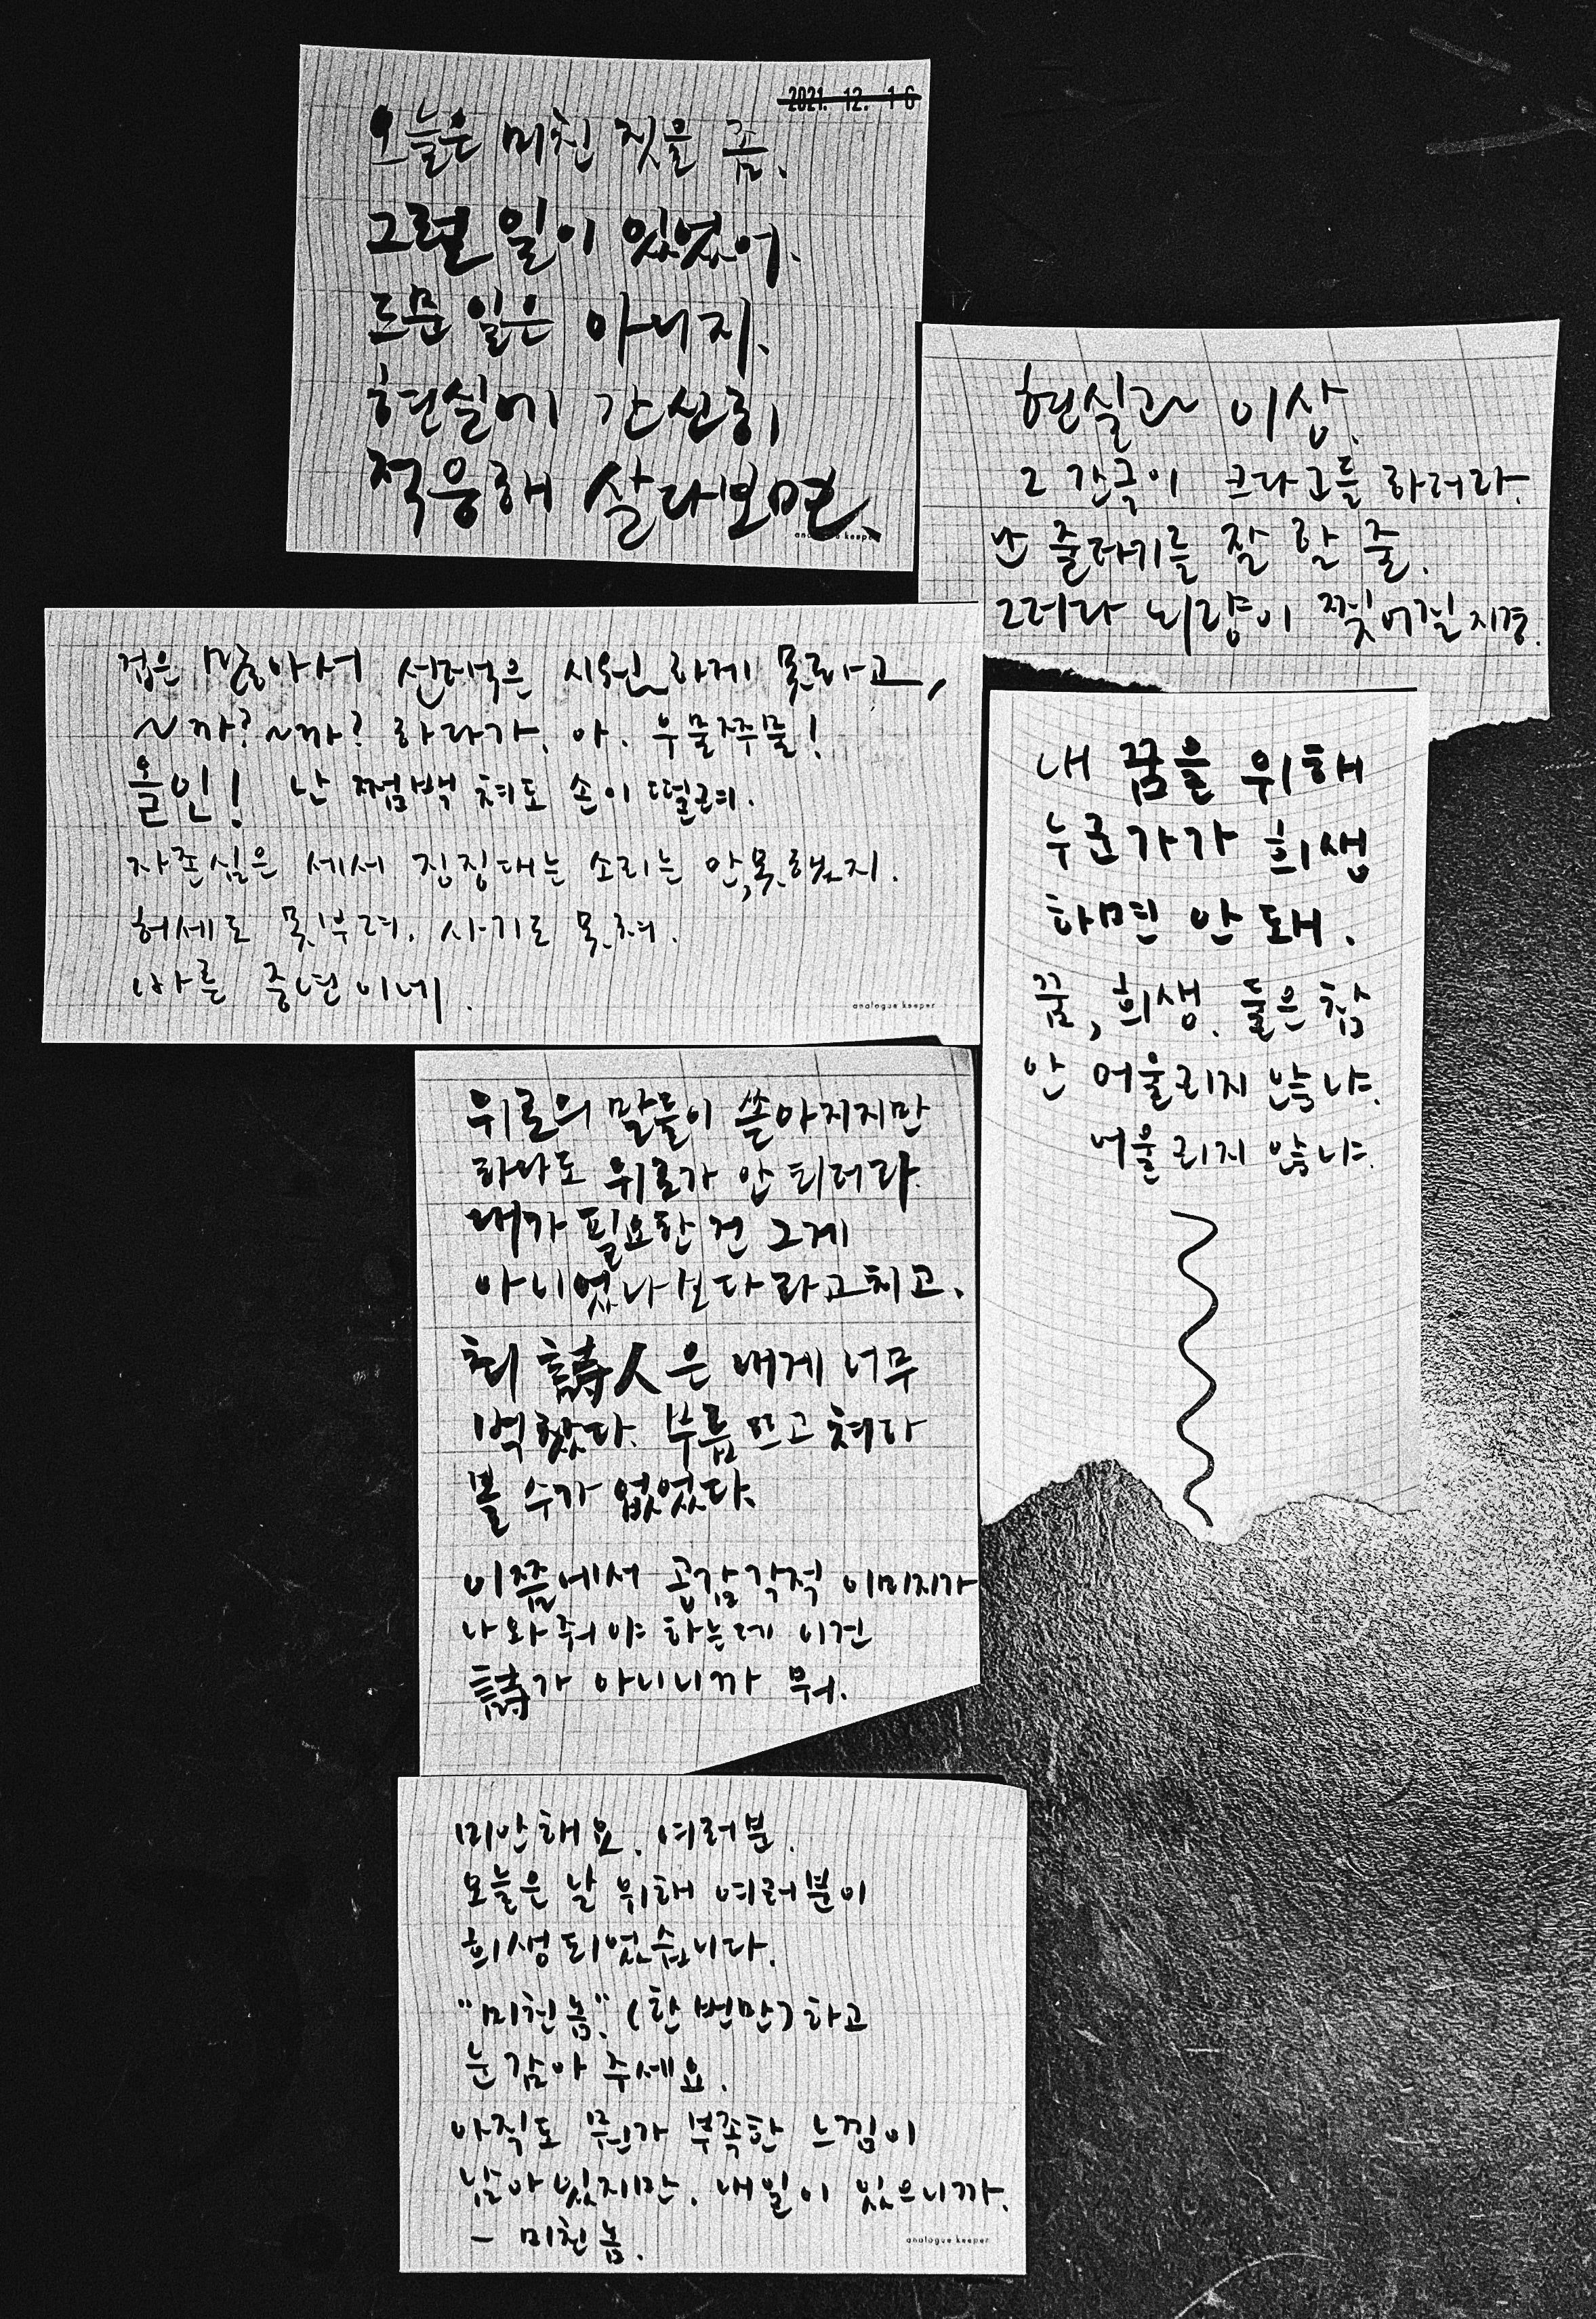 2021. 12. 16
오늘은 미친 짓을 좀.
그럴 일이 있었어.
드문 일은 아니지.
현실에 간신히
적응해 살다보면.
analogue keeper
현실과 이상.
그 간극이 크다고들 하더라.
난 줄타기를 잘 할 줄.
그러다 뇌량이 찢어질 지경.
겁은 많아서 선택은 시원하게 못하고,
~까? ~까? 하다가. 아. 우물쭈물!
올인! 난 쩜백 쳐도 손이 떨려.
자존심은 세서 징징대는 소리는 안,못했지.
허세도 못부려. 사기도 못쳐.
바른 중년이네.
analogue keeper
내 꿈을 위해
누군가가 희생
하면 안 돼.
꿈, 희생. 둘은 참
안 어울리지 않냐.
어울리지 않냐.
위로의 말들이 쏟아지지만
하나도 위로가 안 되더라.
내가 필요한 건 그게
아니었나보다 라고 치고.
최 詩人은 내게 너무
벅찼다. 부릅뜨고 쳐다
볼 수가 없었다.
이쯤에서 공감각적 이미지가
나와줘야 하는데 이건
詩가 아니니까 뭐.
미안해요. 여러분.
오늘은 날 위해 여러분이
희생되었습니다.
"미친놈." (한 번만) 하고
눈 감아 주세요.
아직도 뭔가 부족한 느낌이
남아있지만. 내일이 있으니까.
- 미친놈.
analogue keeper